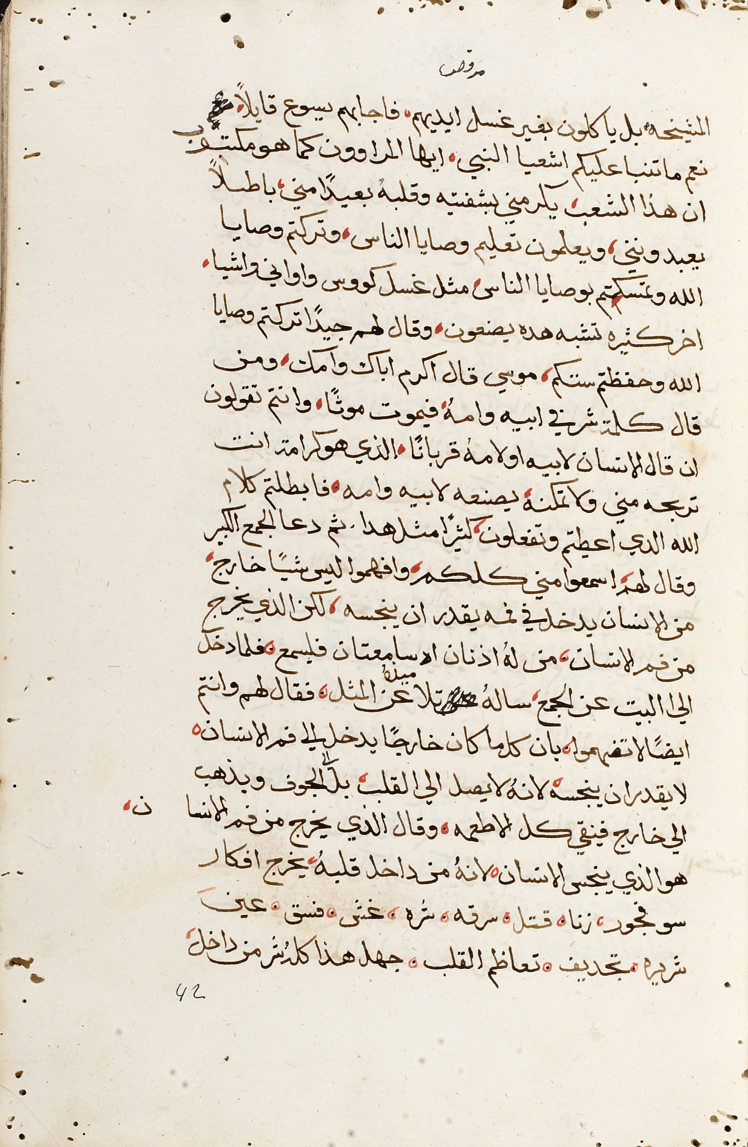 مرقص
المشيخه، بل ياكلون بغير غسل ايديهم، فاجابهم يسوع قايلاً،
نعم ما تنبا عليكم اشعيا النبي، ايها المراوون كما هو مكتوب
ان هذا الشعب يكرمني بشفتيه وقلبهُ بعيدًا مني، باطلاً
يعبدونني، ويعلمون تعليم وصايا الناس، وتركتم وصايا
الله وتمسكتم بوصايا الناس، مثل غسل كووس واواني واشيا،
اخر كثيره تشبه هده يضعون، وقال لهم جيدًا تركتم وصايا
الله وحفظتم سنتكم، موسي قال اكرم اباك وامك، ومن
قال كلمة شر في ابيه وامهُ، فيموت موتًا، وانتم تقولون
ان قال الانسان لابيه او لامهُ قربانًا، الذي هو كرامة انت
تربحه مني ولا تمكنهُ يصنعه لابيه وامه، فابطلتم كلام
الله الدي اعطيتم وتفعلون كثيرًا مثل هدا، ثم دعا الجمع الكبير
وقال لهم، اسمعوا مني كلكم، وافهموا ليس شيًا خارج،
من الانسان يدخل في فمه يقدر ان ينجسه، لكن الذي يخرج
من فم الانسان، من لهُ اذنان سامعتان فليسمع، فلما دخل
الي البيت عن الجمع، سالهُ تلاميذهُ عن المثل، فقال لهم وانتم
ايضًا لا تفهموا، بان كل ما كان خارجًا يدخل الي فم الانسان،
لا يقدر ان ينجسهُ لانهُ لا يصل الي القلب، بل الي الجوف ويذهب
الي خارج فينقي كل الاطعمه، وقال الذي يخرج من فم الانسا ن،
هو الذي ينجس الانسان، لانهُ من داخل قلبهُ، يخرج افكار
سو فجور، زنا، قتل، سرقه، شره، غش، فسق، عين
شريره، تجديف، تعاظم القلب، جهل هذا كلهُ شر من داخل،
42